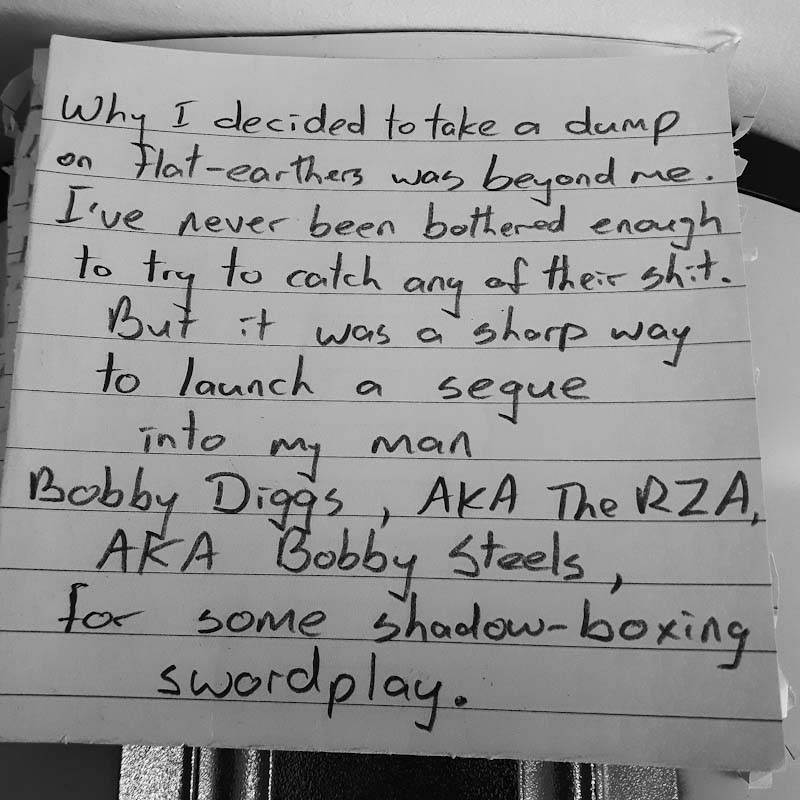 Why I decided to take a dump
on flat-earthers was beyond me.
I've never been bothered enough
to try to catch any of their shit.
But it was a sharp way
to launch a segue
into my man
Bobby Diggs, AKA The RZA,
AKA Bobby Steels,
for some shadow-boxing
swordplay.